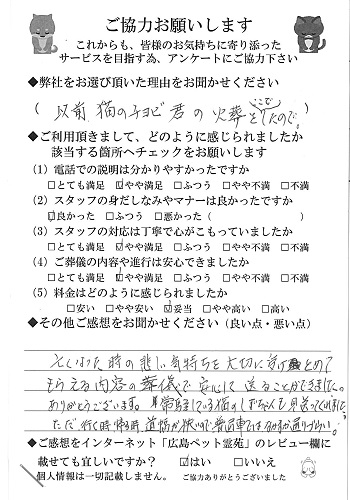 ご協力お願いします
これからも、皆様のお気持ちに寄り添った
サービスを目指す為、アンケートにご協力下さい
◆弊社をお選び頂いた理由をお聞かせください
( 以前 猫のチョビ君の火葬をここでしたので。)
◆ご利用頂きまして、どのように感じられましたか
該当する箇所へチェックをお願いします
(1) 電話での説明は分かりやすかったですか
□とても満足 ☑やや満足 □ふつう □やや不満 □不満
(2) スタッフの身だしなみやマナーは良かったですか
☑良かった □ふつう □悪かった ( )
(3) スタッフの対応は丁寧で心がこもっていましたか
□とても満足 ☑やや満足 □ふつう □やや不満 □不満
(4) ご葬儀の内容や進行は安心できましたか
□とても満足 ☑やや満足 □ふつう □やや不満 □不満
(5) 料金はどのように感じられましたか
□安い □やや安い ☑妥当 □やや高い □高い
◆その他ご感想をお聞かせください (良い点・悪い点)
亡くなった時の悲しい気持ちを大切に受けとめて
もらえる内容の葬儀で安心して送ることができました。
ありがとうございます。
ただ、行く時帰る時、道幅が狭いので
◆ご感想をインターネット「広島ペット霊苑」のレビュー欄に
載せても宜しいですか? ☑はい □いいえ
個人情報は一切記載しません。 ご協力ありがとうございました